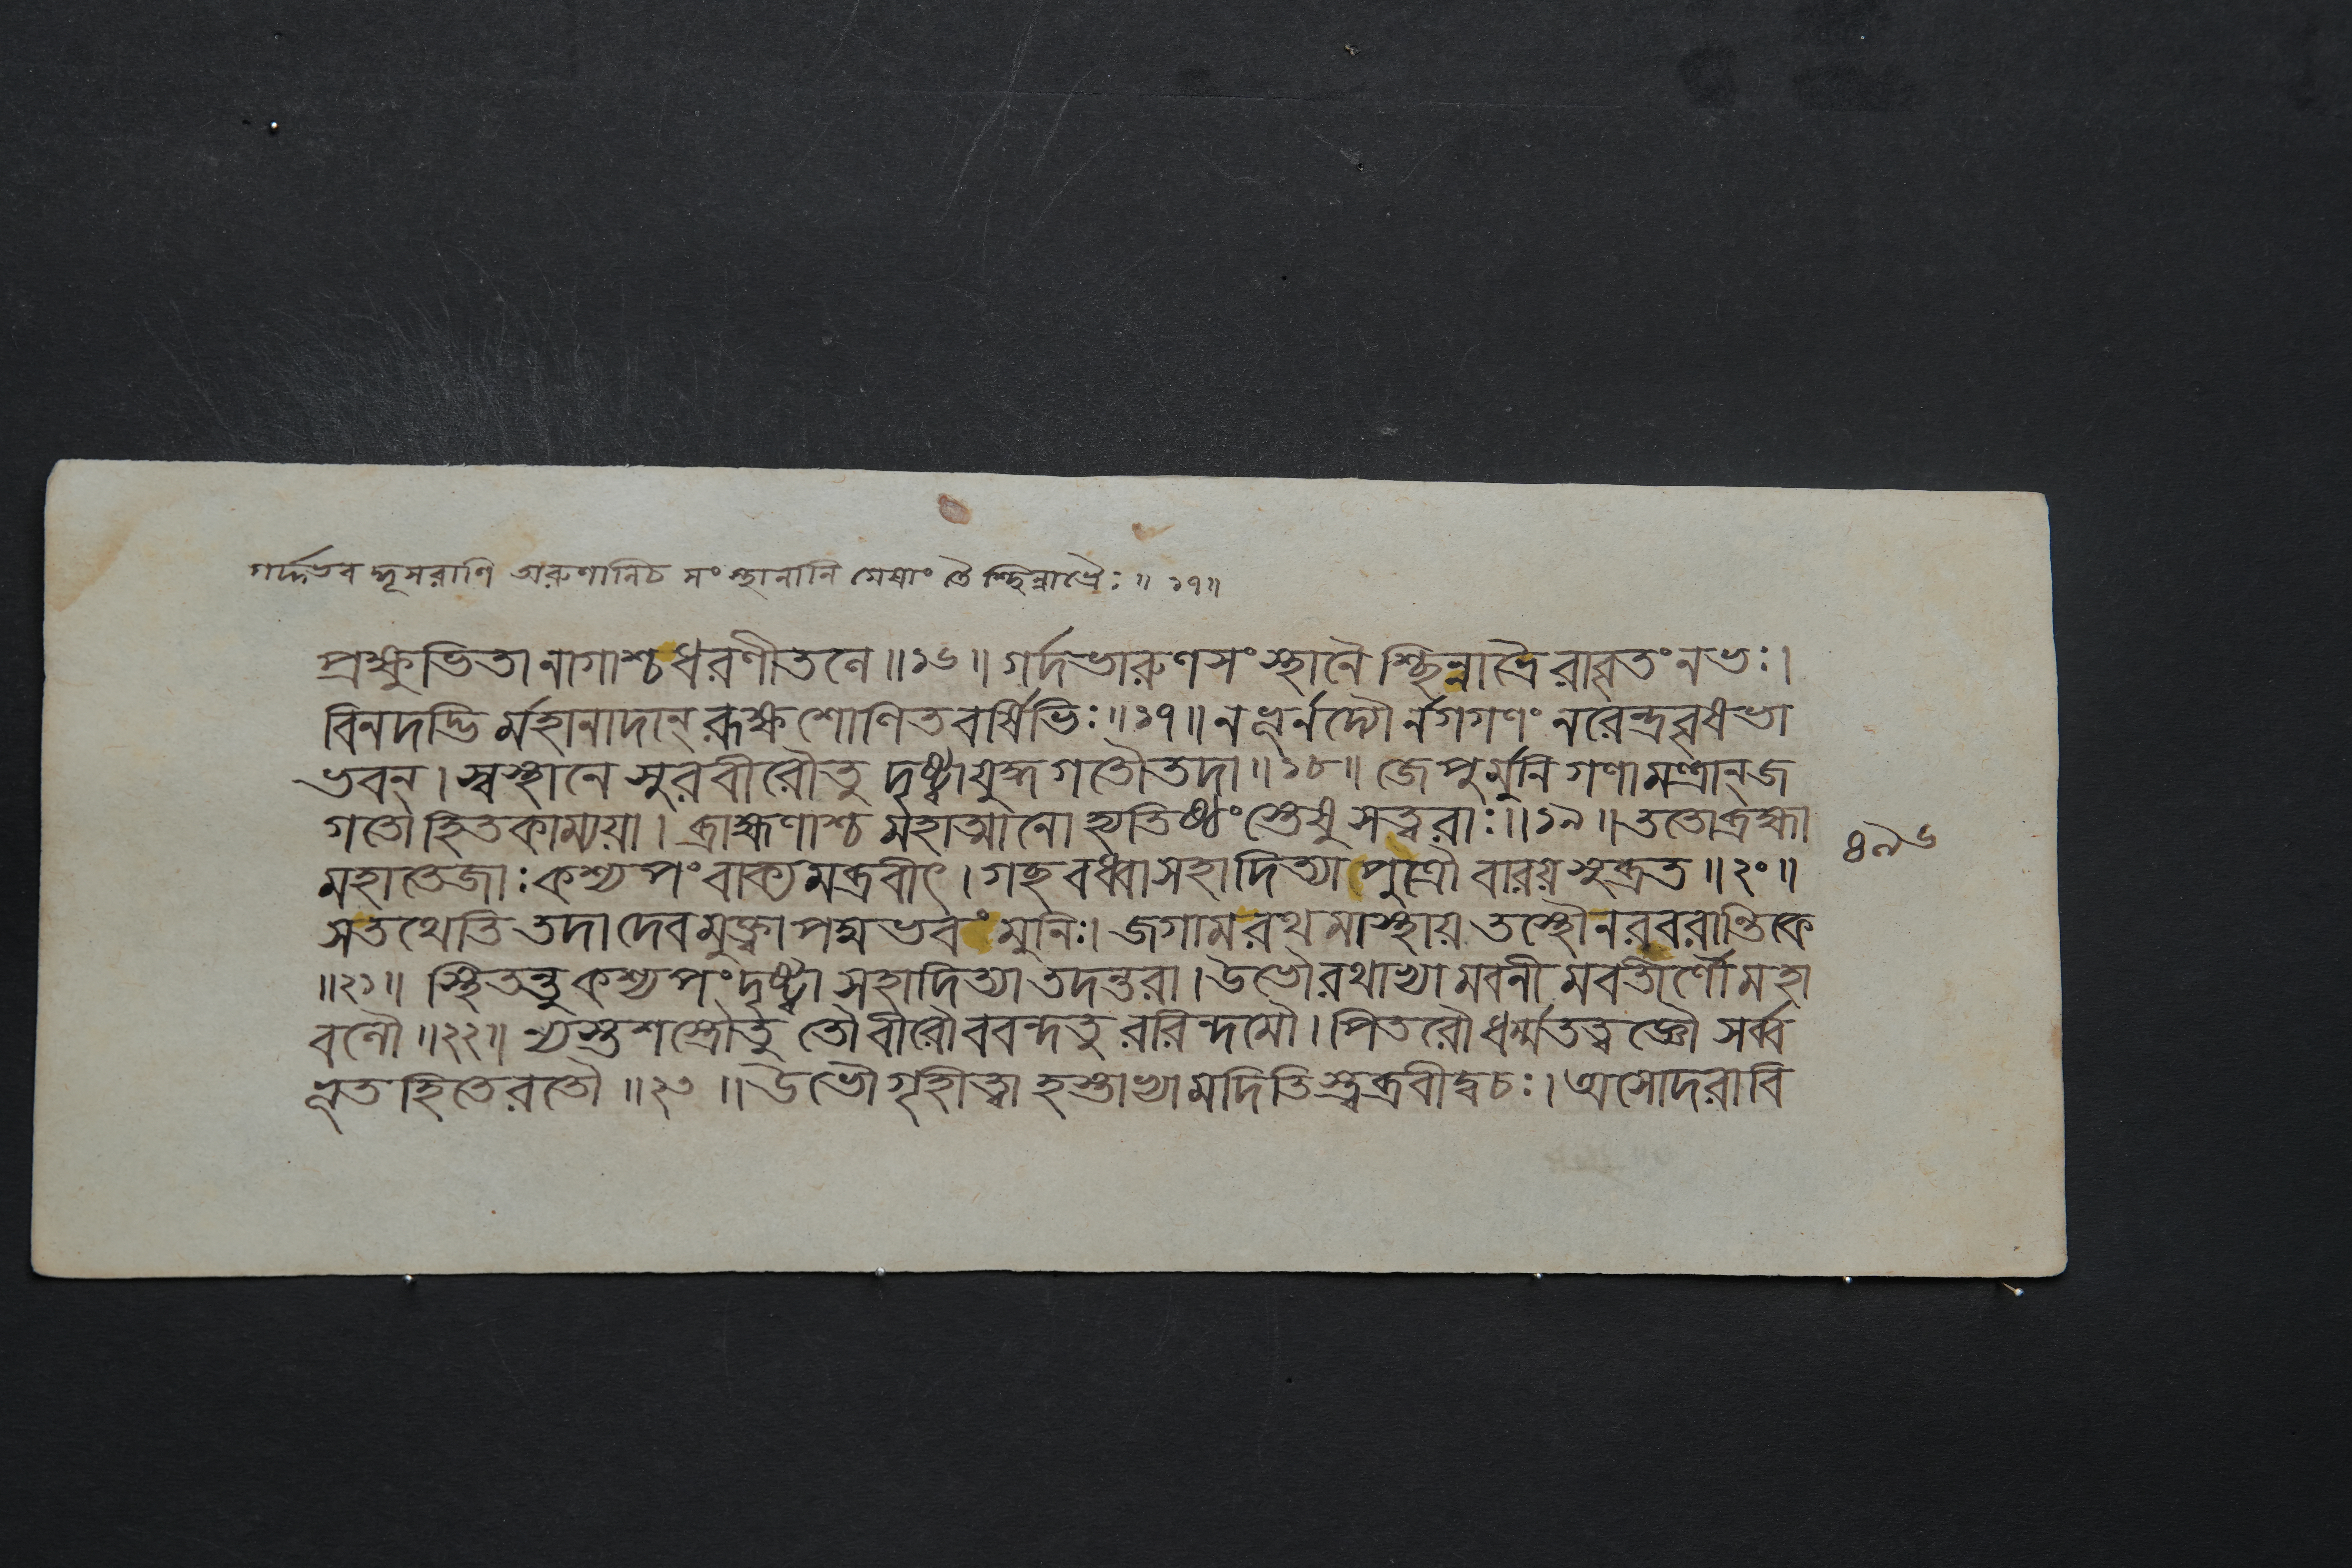 গর্দ্দভব দ্ধূসরাণি অরুণানিচ সংস্থানানি যেষাং তৈ শ্ছিন্নাভ্রৈঃ ॥ ১৭॥
প্রক্ষুভিতা নাগাশ্চ ধরণীতলে ॥১৬॥ গর্দভারুণসংস্থানৈ শ্ছিন্নাভ্রৈ রাবৃতং নভঃ।
বিনদদ্ভি র্মহানাদান্ রূক্ষশোণিতবর্ষিভিঃ ॥১৭॥ ন ভূর্নদ্যৌ র্নগগণং নরেন্দ্রবৃষভা
ভবন্। স্বস্থানে সুরবীরৌতু দৃষ্ট্বাযুদ্ধগতৌতদা ॥১৮॥ জেপুর্মুনিগণামন্ত্রান্ জ
গতো হিতকাম্যয়া। ব্রাহ্মণাশ্চ র্মহাত্মানো হ্যতিষ্ঠং স্তেষু সত্বরাঃ ॥১৯॥ ততোব্রহ্মা
৪৯৬
মহাতেজাঃ কশ্যপং বাক্যমব্রবীৎ। গচ্ছ বধ্বাসহাদিত্যা পুত্রৌ বারয় সুব্রত ॥২০॥
সতথেতি তদা দেবমুক্ত্বা পদ্মভবং মুনিঃ। জগাম রথমাস্থায় তস্থৌনরবরান্তিকে
॥২১॥ স্থিতন্তু কশ্যপং দৃষ্ট্বা সহাদিত্যা তদন্তরা। উভৌ রথাভ্যামবনীমবতীর্ণৌ মহা
বলৌ ॥২২॥ ন্যস্তশস্ত্রৌতু তৌ বীরৌ ববন্দতু ররিন্দমৌ। পিতরৌ ধর্ম্মতত্ত্বজ্ঞৌ সর্ব্ব
ভূতহিতেরতৌ ॥২৩॥ উভৌ গৃহীত্বা হস্তাভ্যামদিতিস্ত্বব্রবীদ্বচঃ। অসোদরাবি